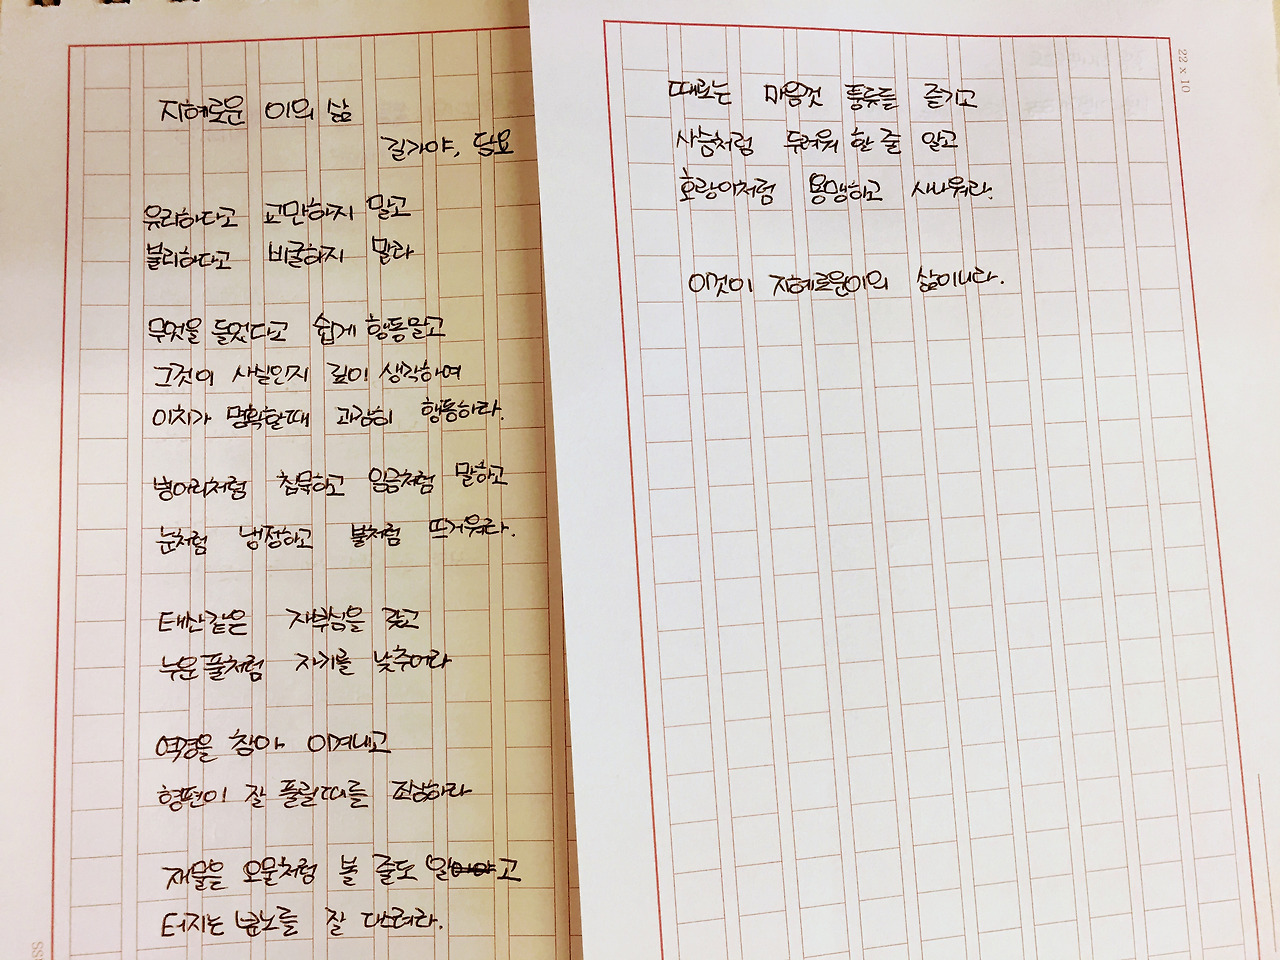 지혜로운 이의 삶
길가야, 담요
유리하다고 교만하지 말고
불리하다고 비굴하지 말라
무엇을 들었다고 쉽게 행동말고
그것이 사실인지 깊이 생각하여
이치가 명확할때 과감히 행동하라.
벙어리처럼 침묵하고 임금처럼 말하고
눈처럼 냉정하고 불처럼 뜨거워라.
태산같은 자부심을 갖고
누운풀처럼 자기를 낮추어라
역경을 참아 이겨내고
형편이 잘 풀릴때를 조심하라
재물을 오물처럼 볼 줄도 알고
터지는 분노를 잘 다스려라.
때로는 마음껏 풍류를 즐기고
사슴처럼 두려워 한 줄 알고
호랑이처럼 용맹하고 사나워라.
이것이 지혜로운이의 삶이니라.
22 x 10